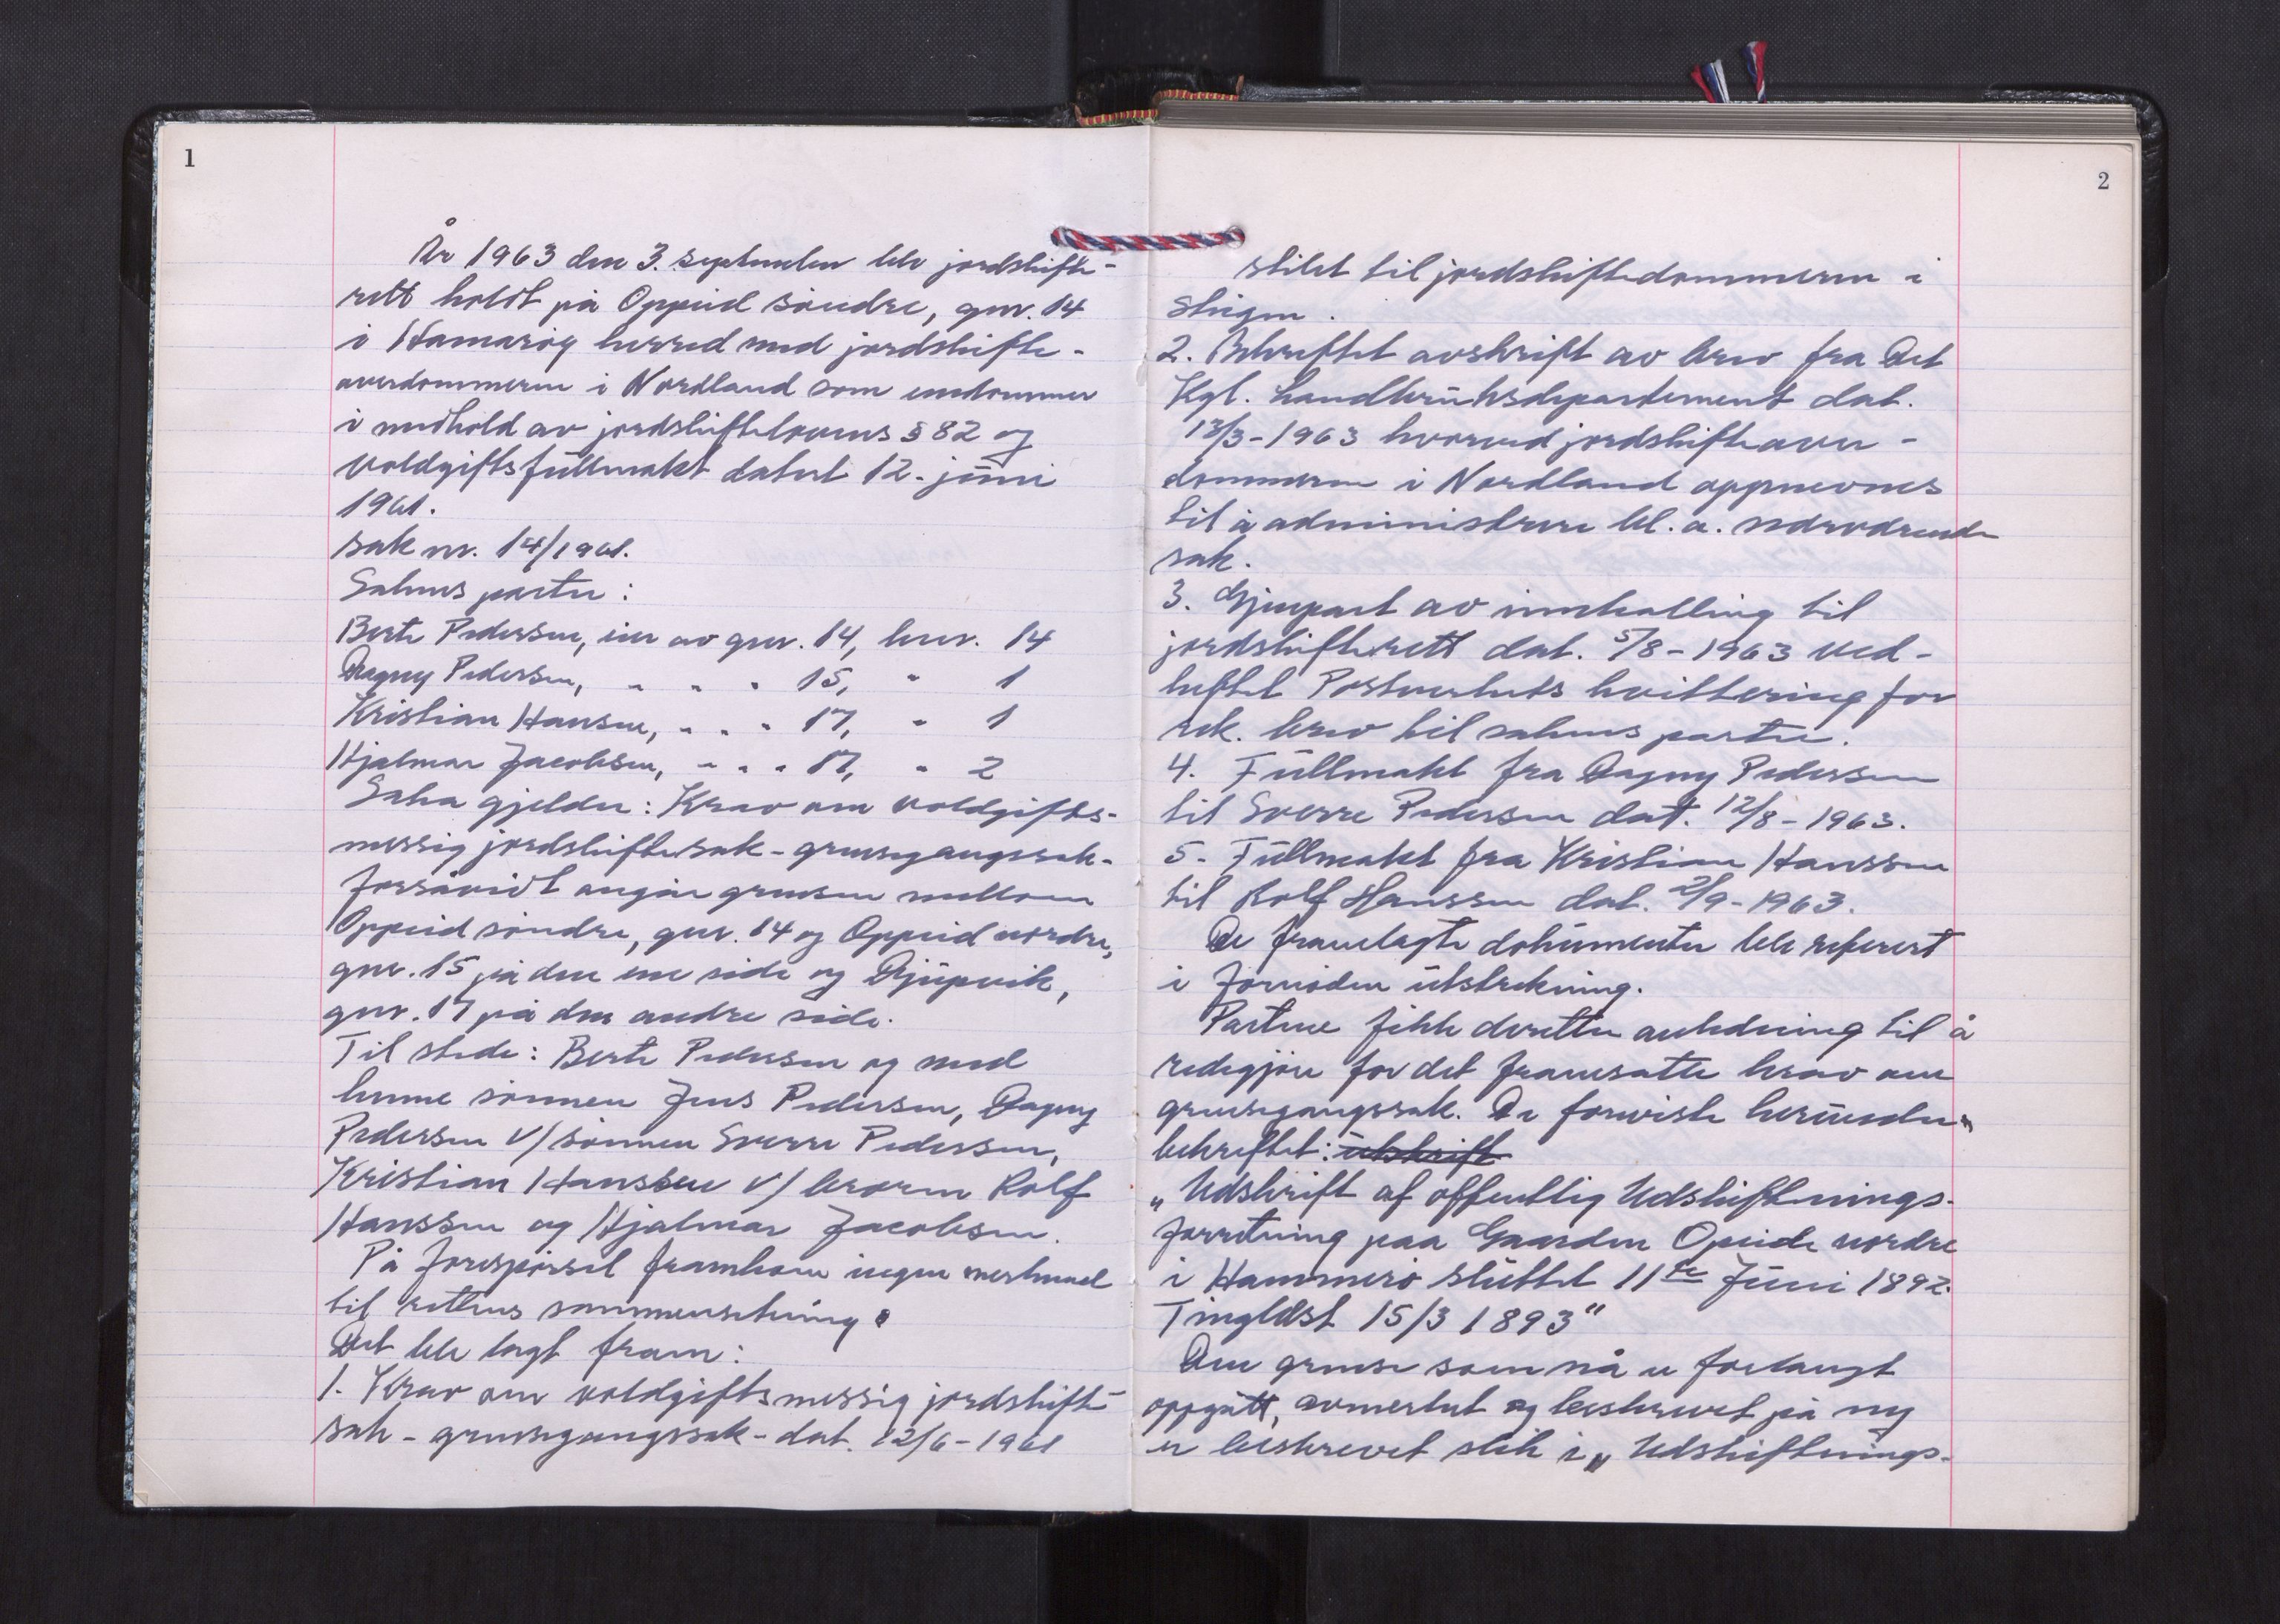 1
År 1963 den 3. september ble jordskifte-
rett holdt på Oppeid söndre, gnr. 14
i Hamaröy herred med jordskifte-
overdommeren i Nordland som eendommer
i medhold av jordskiftelovens § 82 og
voldgiftsfullmakt datert 12. juni
1961.
Sak nr. 14/1961.
Sakens parter:
Berte Pedersen, eier av gnr. 14, bnr. 14
Dagny Pedersen, " " " 15, " 1
Kristian Hansen, " " " 17, " 1
Hjalmar Jacobsen, " " " 17, " 2
Saka gjelder: Krav om voldgifts-
messig jordskiftesak - grensegangssak -
forsåvidt angår grensen mellom
Oppeid söndre, gnr. 14 og Oppeid nordre,
gnr. 15 på den ene side og Djupvik,
gnr. 17 på den andre side.
Til stede: Berte Pedersen og med
henne sönnen Jens Pedersen, Dagny
Pedersen v/ sönnen Sverre Pedersen,
Kristian Hanssen v/ broren Rolf
Hanssen og Hjalmar Jacobsen.
På forespörsel framkom ingen merknad
til rettens sammensetning.
Det ble lagt fram:
1. Krav om voldgiftsmessig jordskifte-
sak - grensegangssak - dat. 12/6-1961
2
stilet til jordskiftedommeren i
Steigen.
2. Bekreftet avskrift av brev fra Det
Kgl. Landbruksdepartement dat.
13/3-1963 hvorved jordskifteover-
dommeren i Nordland oppnevnes
til å administrere bl. a. nærværende
sak.
3. Gjenpart av innkalling til
jordskifterett dat. 5/8-1963 ved-
heftet Postverkets kvittering for
rek. brev til sakens parter.
4. Fullmakt fra Dagny Pedersen
til Sverre Pedersen dat. 12/8-1963.
5. Fullmakt fra Kristian Hanssen
til Rolf Hanssen dat. 2/9-1963.
De framlagte dokumenter ble referert
i fornöden utstrekning.
Partene fikk deretter anledning til å
redegjöre for det framsatte krav om
grensegangssak. De foreviste herunder
bekreftet: utskrift
„Udskrift af offentlig Udskiftnings-
forretning paa Gaarden Opeide nordre
i Hammerö sluttet 11te Juni 1892.
Tinglæst 15/3 1893"
Den grense som nå er forlangt
oppgått, avmerket og beskrevet på ny
er beskrevet slik i „Udskiftnings-